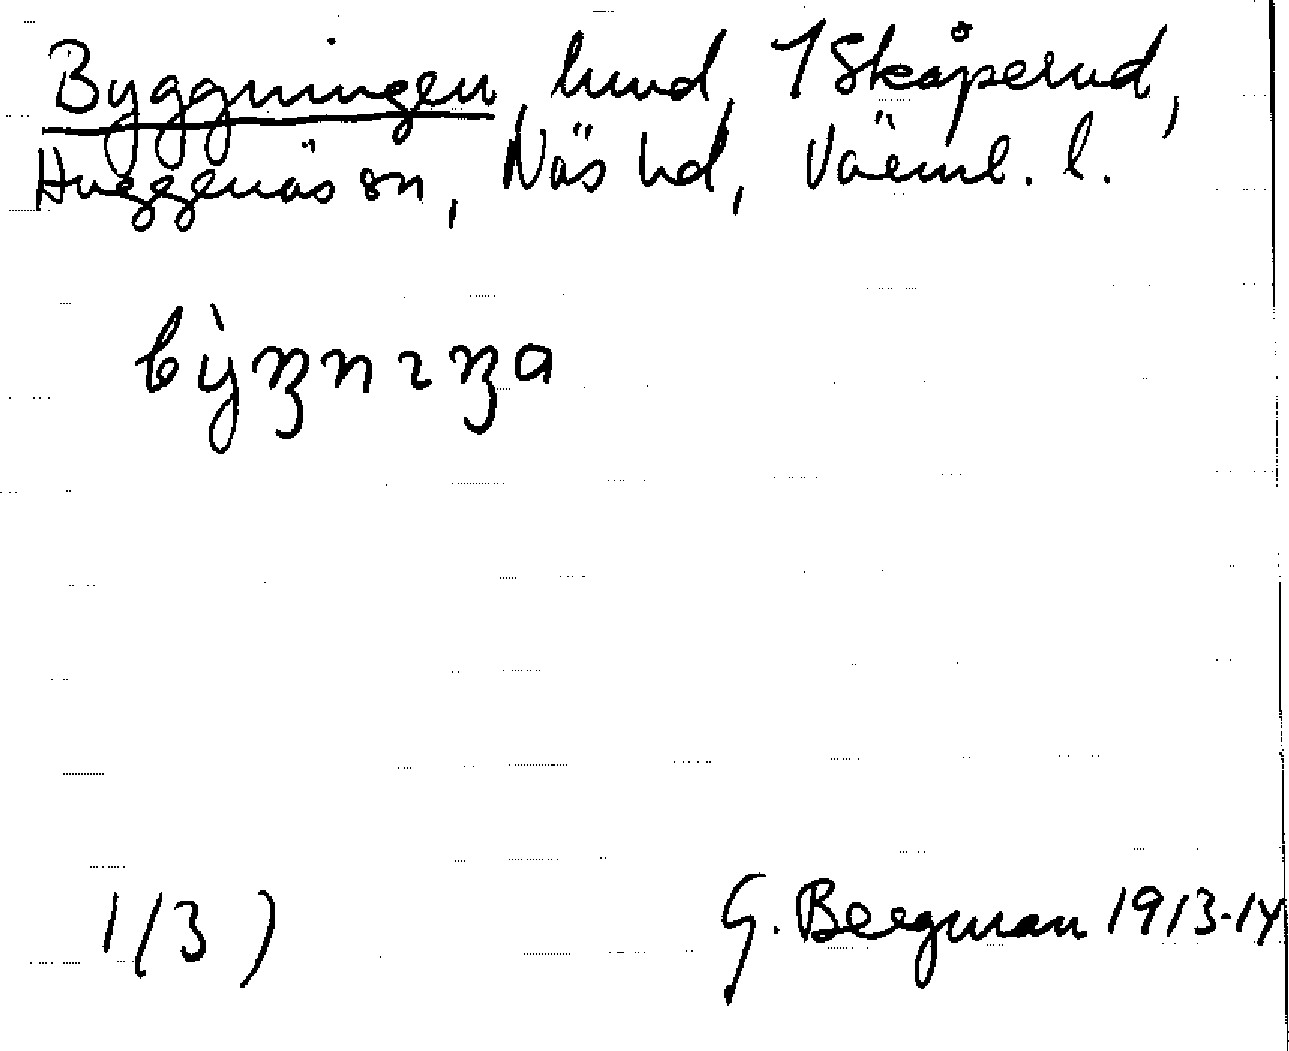 Byggningen, hmd, 1 Skåperud,
Huggenäs sn, Näs hd, Värml. l.
bỳŋnɩŋa
1(3) G. Bergman 1913-14